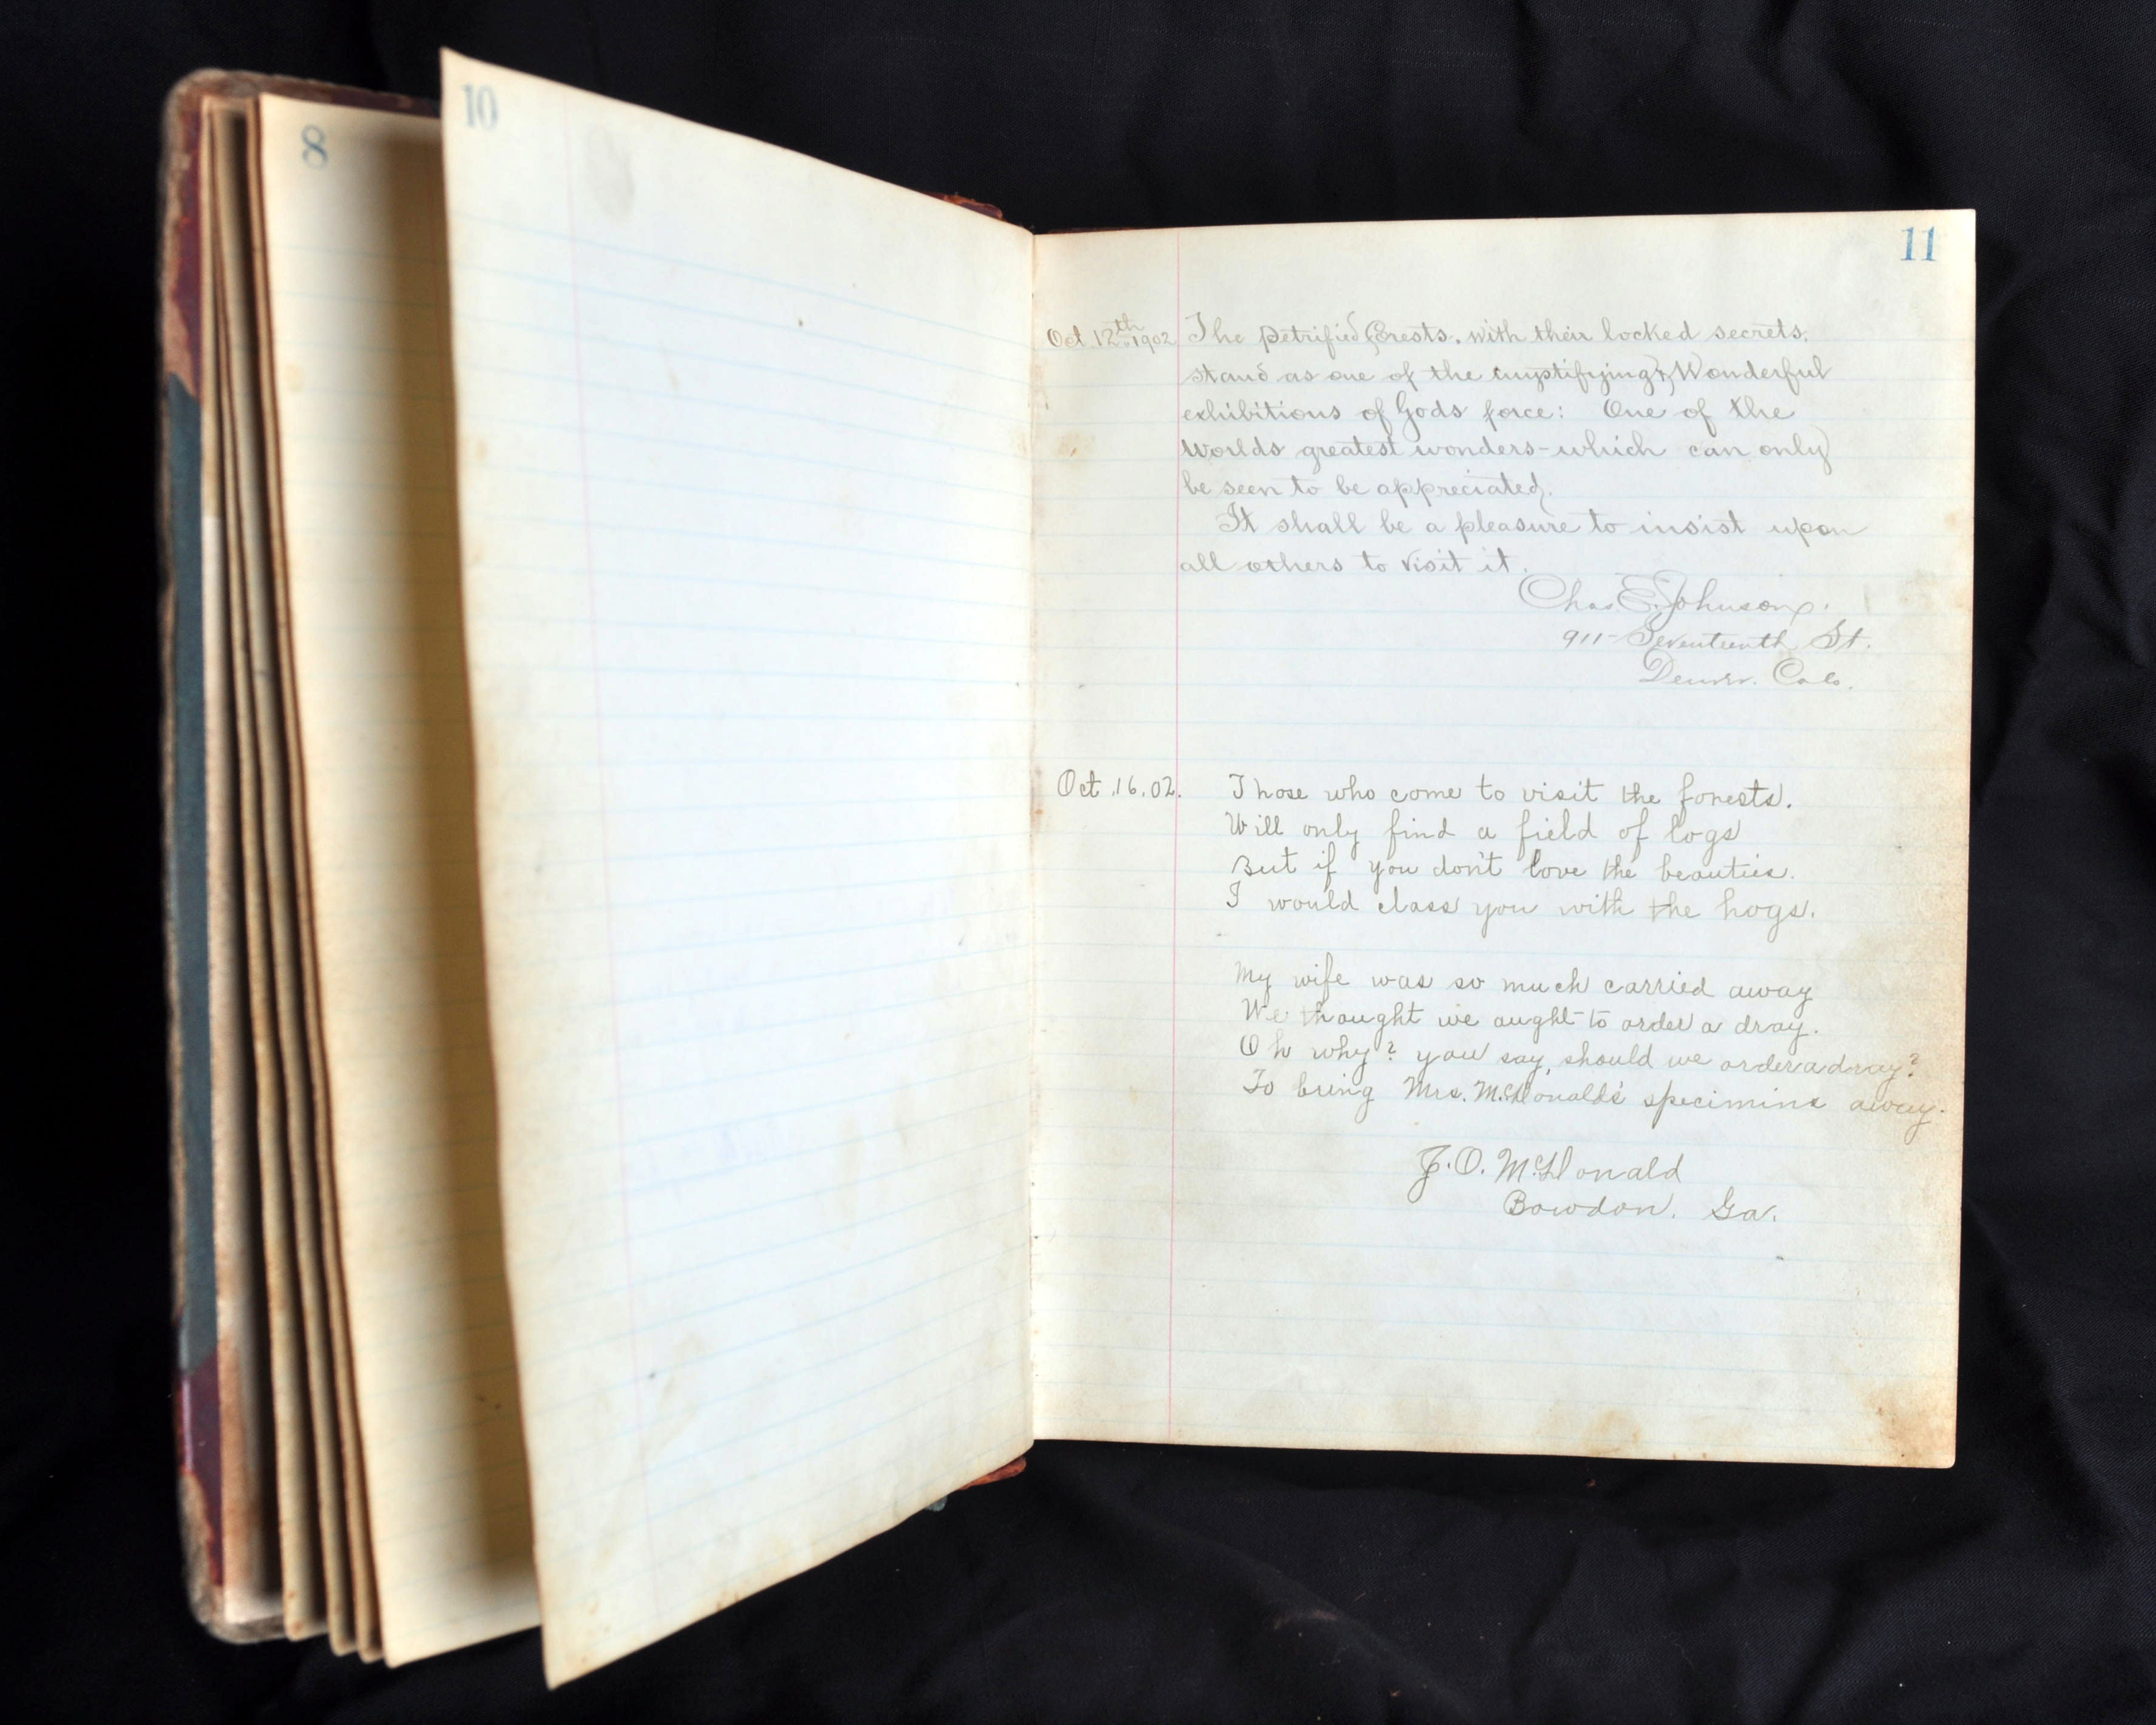 8
10
11
Oct 12th 1902 The petrified forests. with their locked secrets,
stand as one of the mystifying & Wonderful
exhibitions of Gods force: One of the
Worlds greatest wonders - which can only
be seen to be appreciated.
It shall be a pleasure to insist upon
all others to visit it.
Chas E. Johnson.
911 - Seventeenth St.
Denver. Colo.
Oct. 16. 02. Those who come to visit the forests.
Will only find a field of logs
But if you don't love the beauties.
I would class you with the hogs.
My wife was so much carried away
We thought we aught to order a dray.
Oh why? you say, should we order a dray?
To bring Mrs. McDonald's specimins away.
J. O. McDonald
Bowdon. Ga.